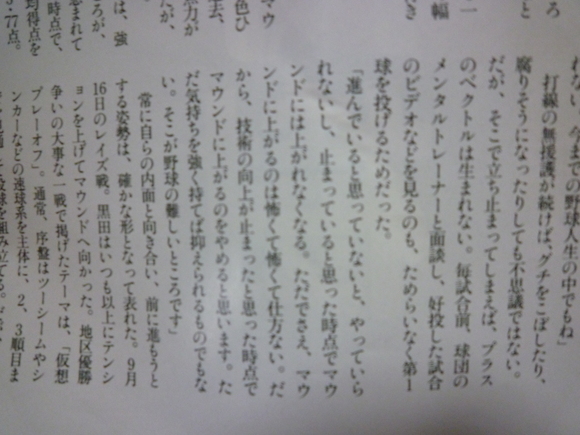 ろ
と
一
幅
いき
マウ
色ひ
去、
力が
たが、
は、強
ろが、
まれて
時点で、
均得点を
・77点。
れない 今までの野球人生の中でもね」
打線の無援護が続けば、グチをこぼしたり、
腐りそうになったりしても不思議ではない。
だが、そこで立ち止まってしまえば、プラス
のベクトルは生まれない。毎試合前、球団の
メンタルトレーナーと面談し、好投した試合
のビデオなどを見るのも、ためらいなく第1
球を投げるためだった。
「進んでいると思っていないと、やっていら
れないし、止まっていると思った時点でマウ
ンドには上がれなくなる。ただでさえ、マウ
ンドに上がるのは怖くて怖くて仕方ない。だ
から、技術の向上が止まったと思った時点で
マウンドに上がるのをやめると思います。た
だ気持ちを強く持てば抑えられるものでもな
い。そこが野球の難しいところです」
常に自らの内面と向き合い、前に進もうと
する姿勢は、確かな形となって表れた。9月
16日のレイズ戦。黒田はいつも以上にテンシ
ョンを上げてマウンドへ向かった。地区優勝
争いの大事な一戦で掲げたテーマは、「仮想
プレーオフ」。通常、序盤はツーシームやシ
ンカーなどの速球系を主体に、2、3順目ま
投球を組み立てる。